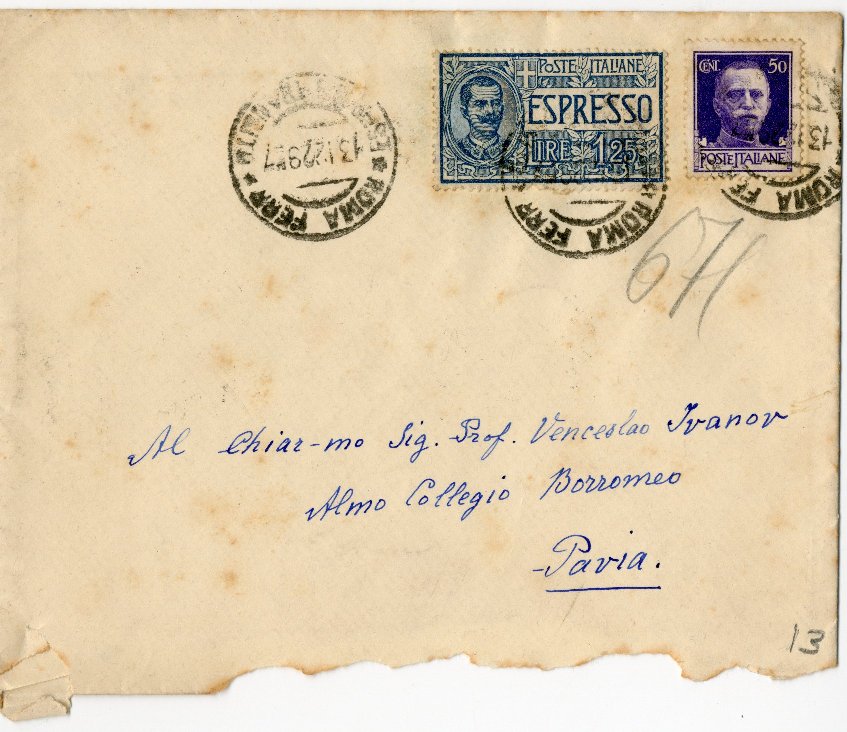 POSTE ITALIANE
ESPRESSO
LIRE 1,25
CENT. 50
POSTE ITALIANE
ROMA FERR
ROMA FERR
ROMA FE
671
Al Chiar-mo Sig. Prof. Venceslao Ivanov
Almo Collegio Borromeo
Pavia.
13